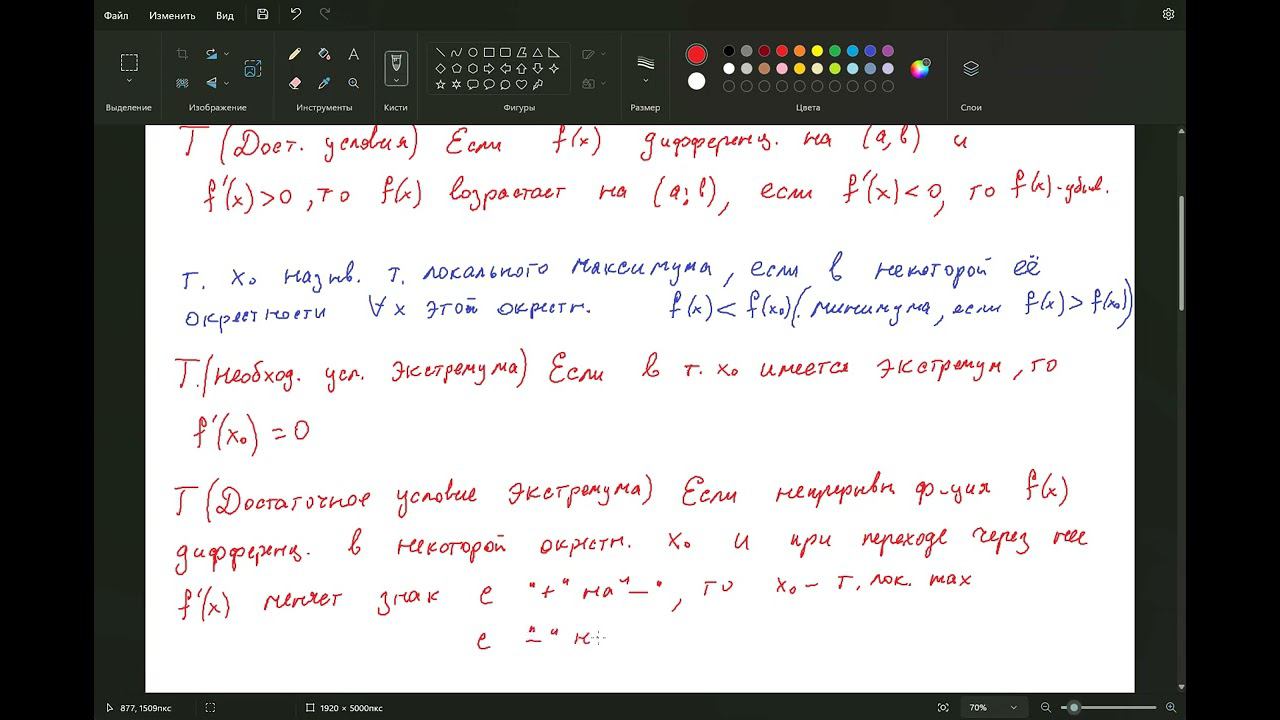 Файл Изменить Вид
Выделение Изображение Инструменты Кисти Фигуры Размер Цвета Слои
Т (Дост. условия) Если f(x) дифференц. на (a, b) и
f'(x) > 0, то f(x) возрастает на (a; b), если f'(x) < 0, то f(x) - убыв.
т. x₀ назыв. т. локального максимума, если в некоторой её
окрестности ∀ x этой окрестн. f(x) < f(x₀) (минимума, если f(x) > f(x₀))
Т. (Необход. усл. экстремума) Если в т. x₀ имеется экстремум, то
f'(x₀) = 0
Т (Достаточное условие экстремума) Если непрерывн ф-ция f(x)
дифференц. в некоторой окрестн. x₀ и при переходе через нее
f'(x) меняет знак с "+" на "–", то x₀ – т. лок. max
с "–" н
877, 1509пкс 1920 × 5000пкс 70%